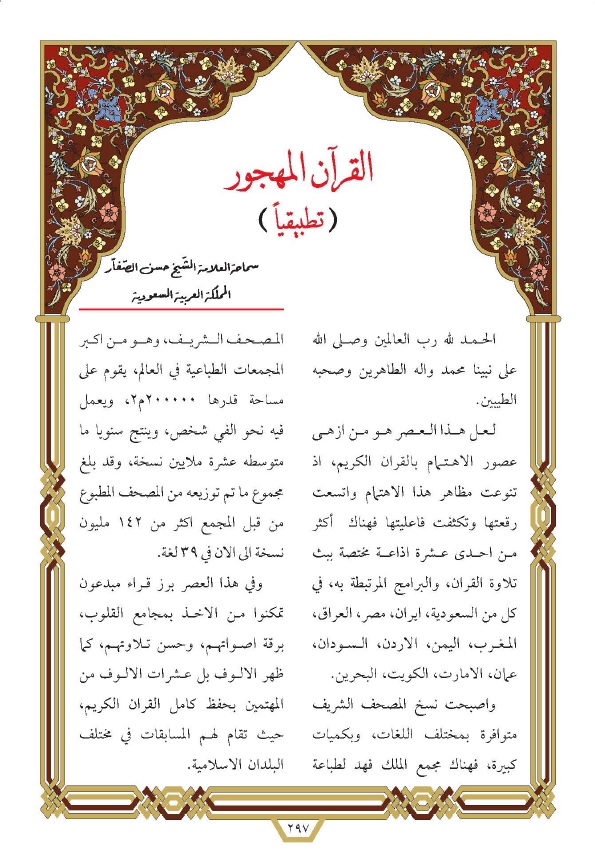 القرآن المهجور
(تطبيقياً)
سماحة العلامة الشيخ حسن الصفار
المملكة العربية السعودية
الحمد لله رب العالمين وصلى الله
على نبينا محمد واله الطاهرين وصحبه
الطيبين.
لعل هذا العصر هو من ازهى
عصور الاهتمام بالقران الكريم، اذ
تنوعت مظاهر هذا الاهتمام واتسعت
رقعتها وتكثفت فاعليتها فهناك أكثر
من احدى عشرة اذاعة مختصة ببث
تلاوة القران، والبرامج المرتبطة به، في
كل من السعودية، ايران، مصر، العراق،
المغرب، اليمن، الاردن، السودان،
عمان، الامارت، الكويت، البحرين.
واصبحت نسخ المصحف الشريف
متوافرة بمختلف اللغات، وبكميات
كبيرة، فهناك مجمع الملك فهد لطباعة
المصحف الشريف، وهو من اكبر
المجمعات الطباعية في العالم، يقوم على
مساحة قدرها ٢٠٠٠٠٠م٢، ويعمل
فيه نحو الفي شخص، وينتج سنويا ما
متوسطه عشرة ملايين نسخة، وقد بلغ
مجموع ما تم توزيعه من المصحف المطبوع
من قبل المجمع اكثر من ١٤٢ مليون
نسخة الى الان في ٣٩ لغة.
وفي هذا العصر برز قراء مبدعون
تمكنوا من الاخذ بمجامع القلوب،
برقة اصواتهم، وحسن تلاوتهم، كما
ظهر الالوف بل عشرات الالوف من
المهتمين بحفظ كامل القران الكريم،
حيث تقام لهم المسابقات في مختلف
البلدان الاسلامية.
٢٩٧